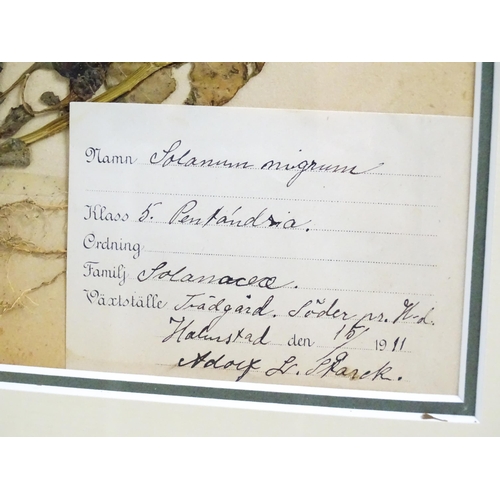 Namn Solanum nigrum
Klass 5. Pentándria.
Ordning
Familj Solanaceæ.
Växtställe Trädgård. Söder pr. H-d.
Halmstad den 15/9 1911
Adolf L. Starck.